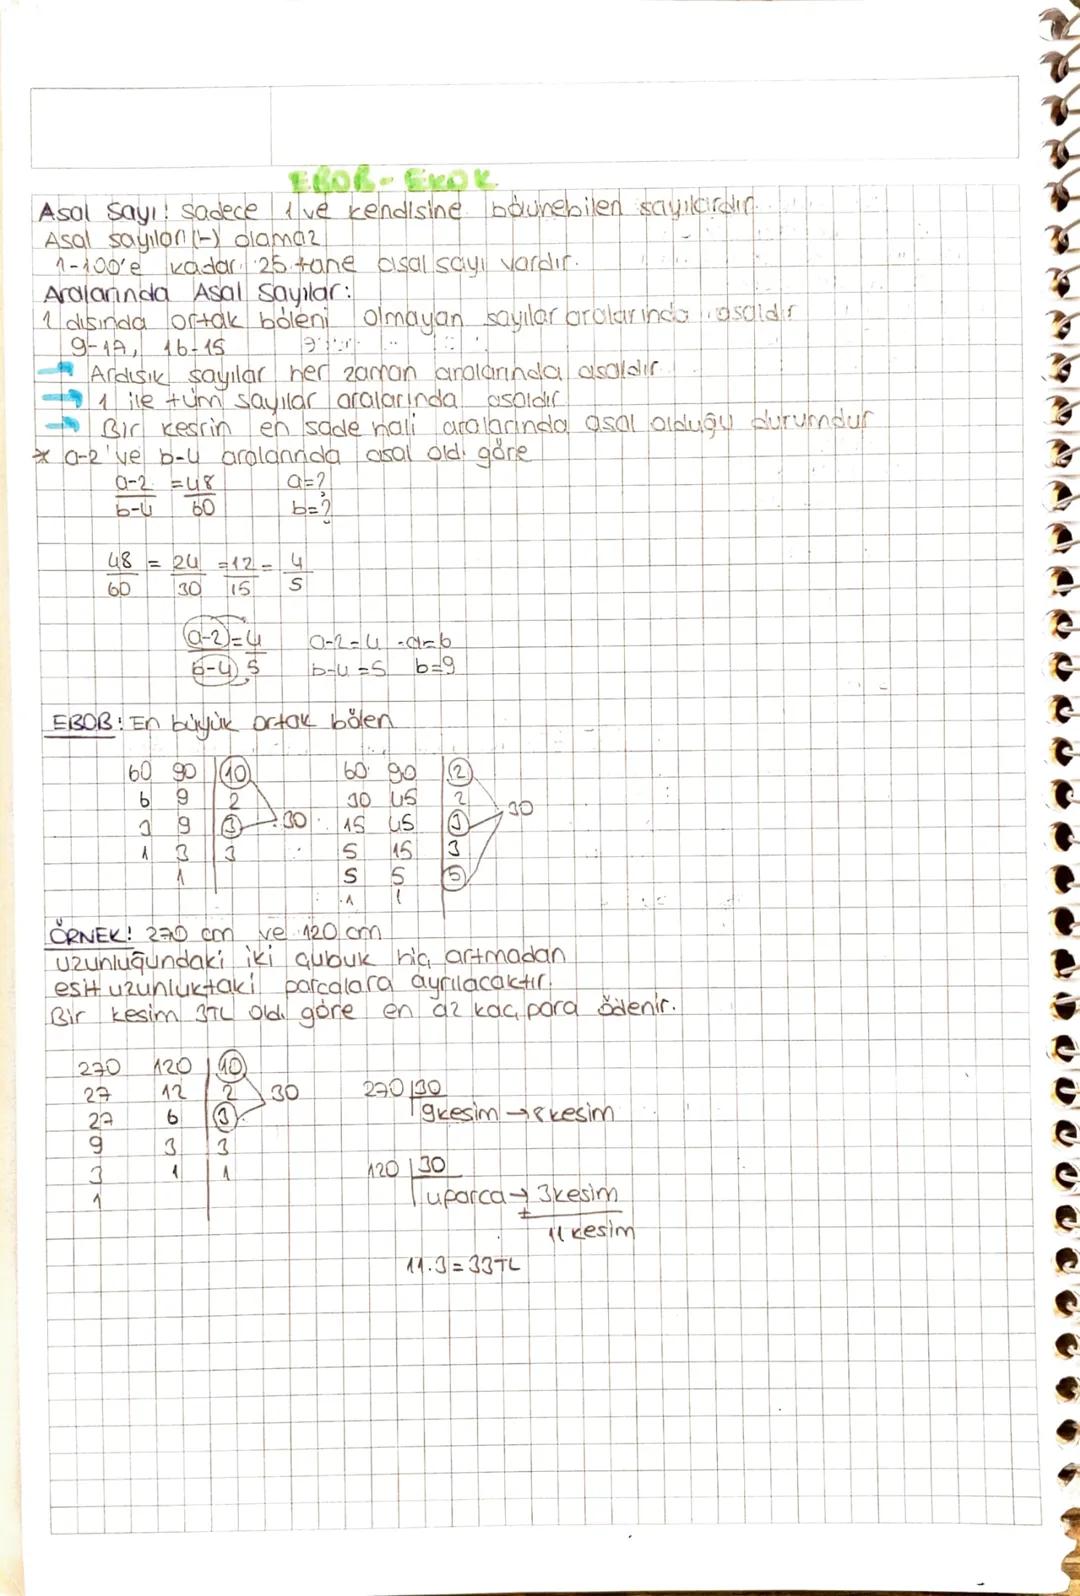 EBOB - EKOK
Asal Sayı: Sadece 1 ve kendisine bölünebilen sayılardır.
Asal sayılar (-) olamaz
1-100'e kadar 25 tane asal sayı vardır.
Aralarında Asal Sayılar:
1 dışında ortak böleni olmayan sayılar aralarında asaldır
9-17, 16-15
→ Ardışık sayılar her zaman aralarında asaldır.
→ 1 ile tüm sayılar aralarında asaldır
→ Bir kesrin en sade hali aralarında asal olduğu durumdur
* a-2 've b-4 aralarında asal old. göre
a-2 = 48 a=?
b-4 60 b=?
48 = 24 = 12 = 4
60 30 15 5
(a-2) = 4 a-2=4 -a=6
(b-4) 5 b-4=5 b=9
EBOB: En büyük ortak bölen
60 90 10 60 90 2
6 9 2 30 45 2
3 9 3 30 15 45 3 30
1 3 3 5 15 3
1 5 5 5
1 1
ÖRNEK: 270 cm ve 120 cm
uzunluğundaki iki çubuk hiç artmadan
eşit uzunluktaki parçalara ayrılacaktır.
Bir kesim 3TL old. göre en az kaç para ödenir.
270 120 10
27 12 2 30 270 30
27 6 3 9kesim → 8kesim
9 3 3
3 1 1 120 30
1 4parça → 3kesim
+
11 kesim
11.3=33TL